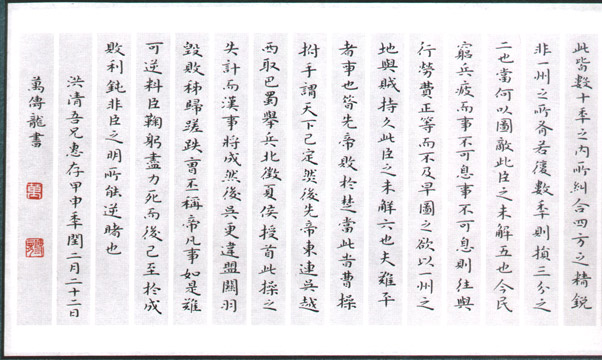 此皆數十秊之内所糾合四方之精銳
非一州之所有若復數秊則損三分之
二也當何以圖敵此臣之未解五也今民
窮兵疲而事不可息事不可息則住與
行勞費正等而不及早圖之欲以一州之
地與賊持久此臣之未解六也夫難平
者事也昔先帝敗於楚當此旹曹操
拊手謂天下已定然後先帝東連吳越
西取巴蜀舉兵北徵夏侯授首此操之
失計而漢事將成然後吳更違盟關羽
毀敗秭歸蹉跌曹丕稱帝凡事如是難
可逆料臣鞠躬盡力死而後已至於成
敗利鈍非臣之明所能逆睹也
洪清吾兄惠存甲申秊閏二月二十二日
萬傳龍書